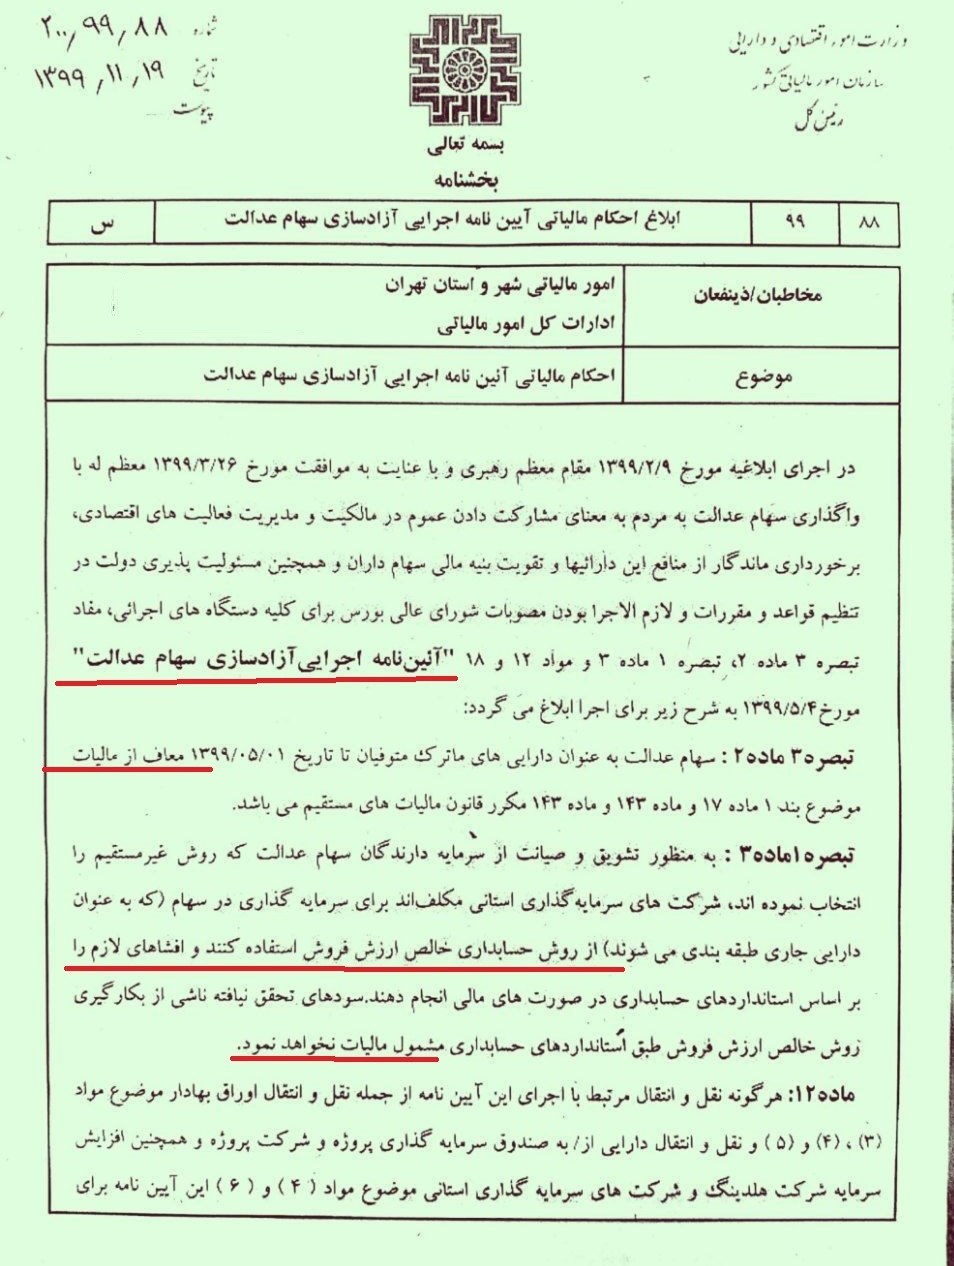 وزارت امور اقتصادی و دارایی
سازمان امور مالیاتی کشور
رئیس کل
شماره ۲۰۰,۹۹,۸۸
تاریخ ۱۳۹۹,۱۱,۱۹
پیوست
بسمه تعالی
بخشنامه
۸۸ ۹۹ ابلاغ احکام مالیاتی آیین نامه اجرایی آزادسازی سهام عدالت س
مخاطبان/ذینفعان
امور مالیاتی شهر و استان تهران
ادارات کل امور مالیاتی
موضوع احکام مالیاتی آئین نامه اجرایی آزادسازی سهام عدالت
در اجرای ابلاغیه مورخ ۱۳۹۹/۲/۹ مقام معظم رهبری و با عنایت به موافقت مورخ ۱۳۹۹/۳/۲۶ معظم له با
واگذاری سهام عدالت به مردم به معنای مشارکت دادن عموم در مالکیت و مدیریت فعالیت های اقتصادی،
برخورداری ماندگار از منافع این دارائیها و تقویت بنیه مالی سهام داران و همچنین مسئولیت پذیری دولت در
تنظیم قواعد و مقررات و لازم الاجرا بودن مصوبات شورای عالی بورس برای کلیه دستگاه های اجرائی، مفاد
تبصره ۳ ماده ۲، تبصره ۱ ماده ۳ و مواد ۱۲ و ۱۸ "آئین‌نامه اجرایی‌آزادسازی سهام عدالت"
مورخ۱۳۹۹/۵/۴ به شرح زیر برای اجرا ابلاغ می گردد:
تبصره۳ ماده۲ : سهام عدالت به عنوان دارایی های ماترک متوفیان تا تاریخ ۱۳۹۹/۰۵/۰۱ معاف از مالیات
موضوع بند ۱ ماده ۱۷ و ماده ۱۴۳ و ماده ۱۴۳ مکرر قانون مالیات های مستقیم می باشد.
تبصره۱ماده۳ : به منظور تشویق و صیانت از سرمایه دارندگان سهام عدالت که روش غیرمستقیم را
انتخاب نموده اند، شرکت های سرمایه‌گذاری استانی مکلف‌اند برای سرمایه گذاری در سهام (که به عنوان
دارایی جاری طبقه بندی می شوند) از روش حسابداری خالص ارزش فروش استفاده کنند و افشاهای لازم را
بر اساس استانداردهای حسابداری در صورت های مالی انجام دهند.سودهای تحقق نیافته ناشی از بکارگیری
روش خالص ارزش فروش طبق استانداردهای حسابداری مشمول مالیات نخواهد نمود.
ماده۱۲: هرگونه نقل و انتقال مرتبط با اجرای این آیین نامه از جمله نقل و انتقال اوراق بهادار موضوع مواد
(۳) ، (۴) و (۵) و نقل و انتقال دارایی از/ به صندوق سرمایه گذاری پروژه و شرکت پروژه و همچنین افزایش
سرمایه شرکت هلدینگ و شرکت های سرمایه گذاری استانی موضوع مواد (۴) و (۶) این آیین نامه برای